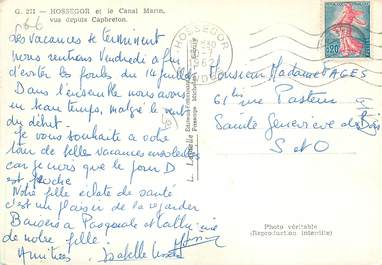 G. 271 - HOSSEGOR et le Canal Marin,
vue depuis Capbreton.
6-6
Les vacances se terminent
nous rentrons Vendredi afin
d'éviter les foules du 14 juillet
Dans l'ensemble nous avons
eu beau temps, malgré le vent
du début.
Je vous souhaite à votre
tour de belle vacances ensoleillées
car je crois que le jour D
est proche
Notre fille éclate de santé
c'est un plaisir de la regarder
Baisers à Pasquale et Cathy
de notre fille.
Amitiés. Isabelle
HOSSEGOR
LANDES
0,20
Monsieur Madame PAGES
61 rue Pasteur
Sainte Geneviève des Bois
S et O
Photo véritable
(Reproduction interdite)